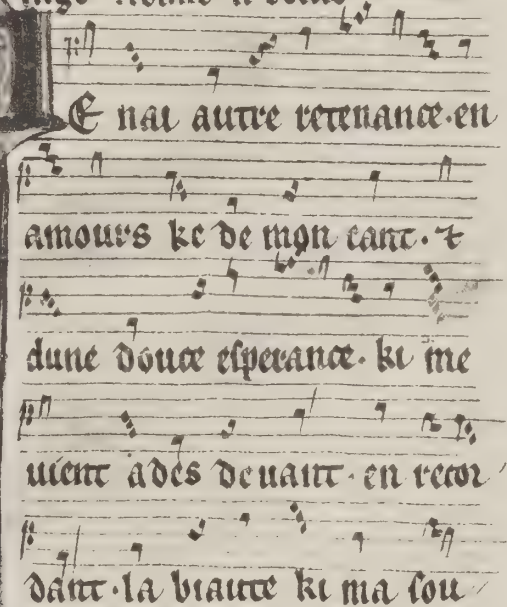 JE nai autre retenance·en
amours ke de mon cant· ⁊
dune douce esperance· ki me
uient ades deuant· en recor
dant·la biaute ki ma sou